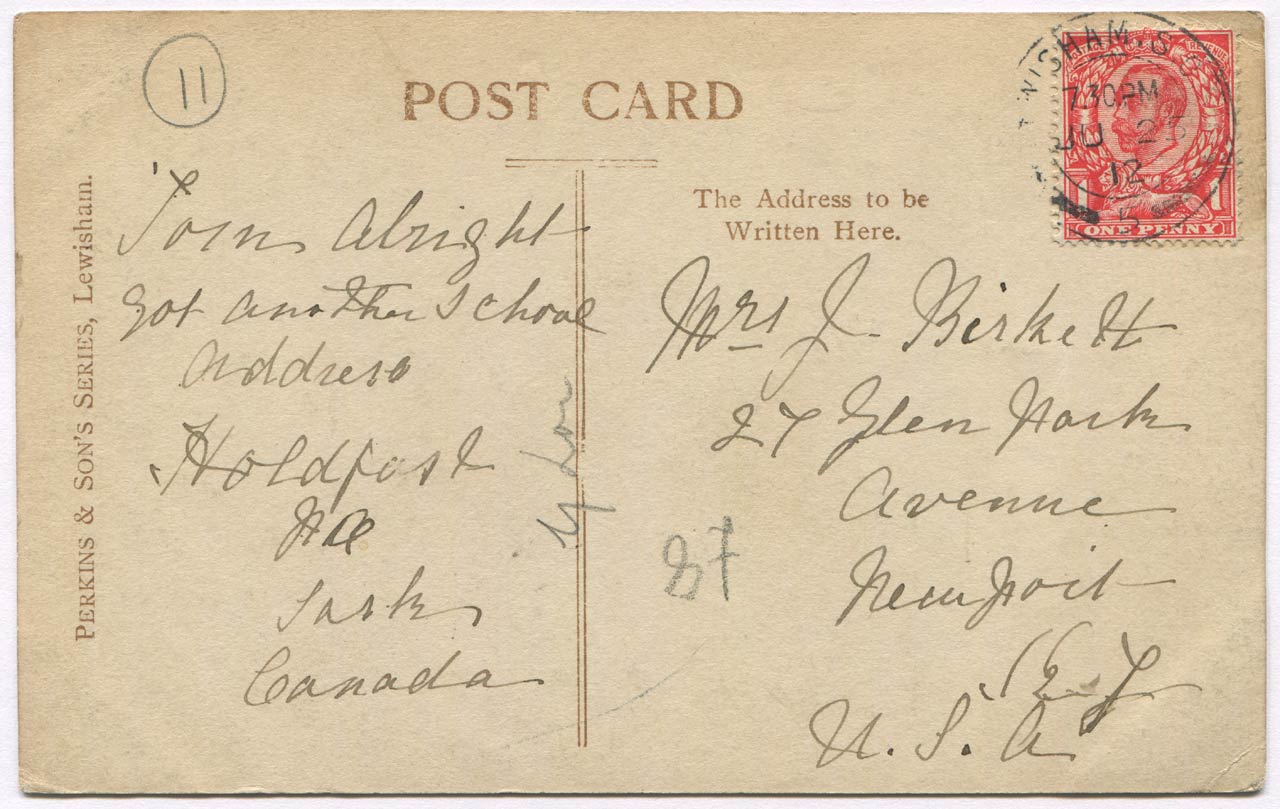 11
POST CARD
LEWISHAM. S.
7.30 PM
JU 25
12
ONE PENNY
PERKINS & SON'S SERIES, Lewisham.
Tom Alright
got another school
address
Holdfast
PO
Sask
Canada
The Address to be
Written Here.
Mrs J. Birkett
27 Glen Park
Avenue
Newport
U. S. A